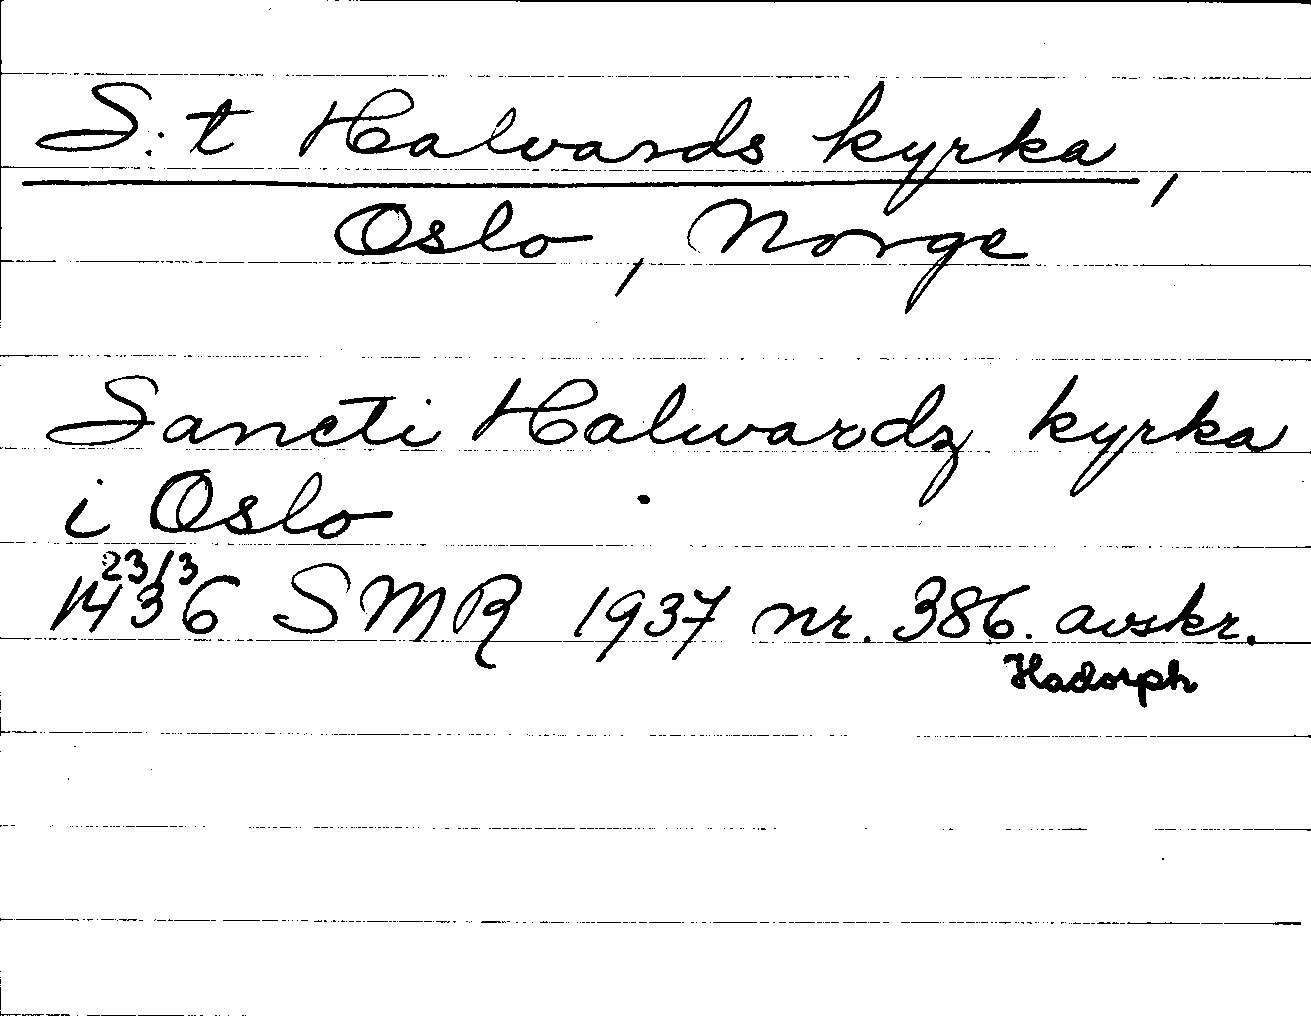 S:t Halvards kyrka,
Oslo, Norge
Sancti Halwardz kyrka
i Oslo
23/3
1436 SMR 1937 nr. 386. avskr.
Hadorph